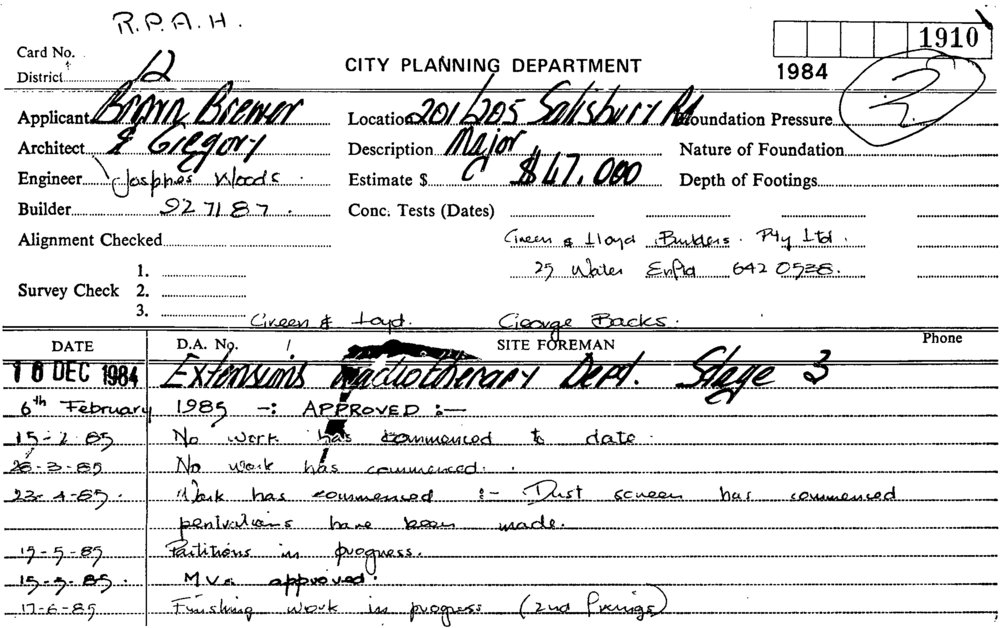 R.P.A.H.
1910
Card No. 12
District
CITY PLANNING DEPARTMENT
1984
3
Applicant Brown Brewer
Location 201/205 Salisbury Rd
Foundation Pressure
Architect & Gregory
Description Major
Nature of Foundation
Engineer Josphes Woods.
Estimate $ $47.000
Depth of Footings
Builder 927187.
Conc. Tests (Dates)
Alignment Checked
Green & Lloyd Builders. Pty Ltd.
25 Water Enfld 642 0528.
Survey Check
1.
2.
3.
Green & Loyd. George Backs.
DATE
D.A. No.
SITE FOREMAN
Phone
18 DEC 1984 Extensions Radiotherapy Dept. Stage 3
6th February 1985 -: APPROVED :-
15-2-85 No work has commenced to date.
26-3-85 No work has commenced.
23-4-85. Work has commenced :- Dust screen has commenced
penitrations have been made.
15-5-85 Partitions in progress.
15-5-85. approved.
17-6-85 Finishing work in progress (2nd